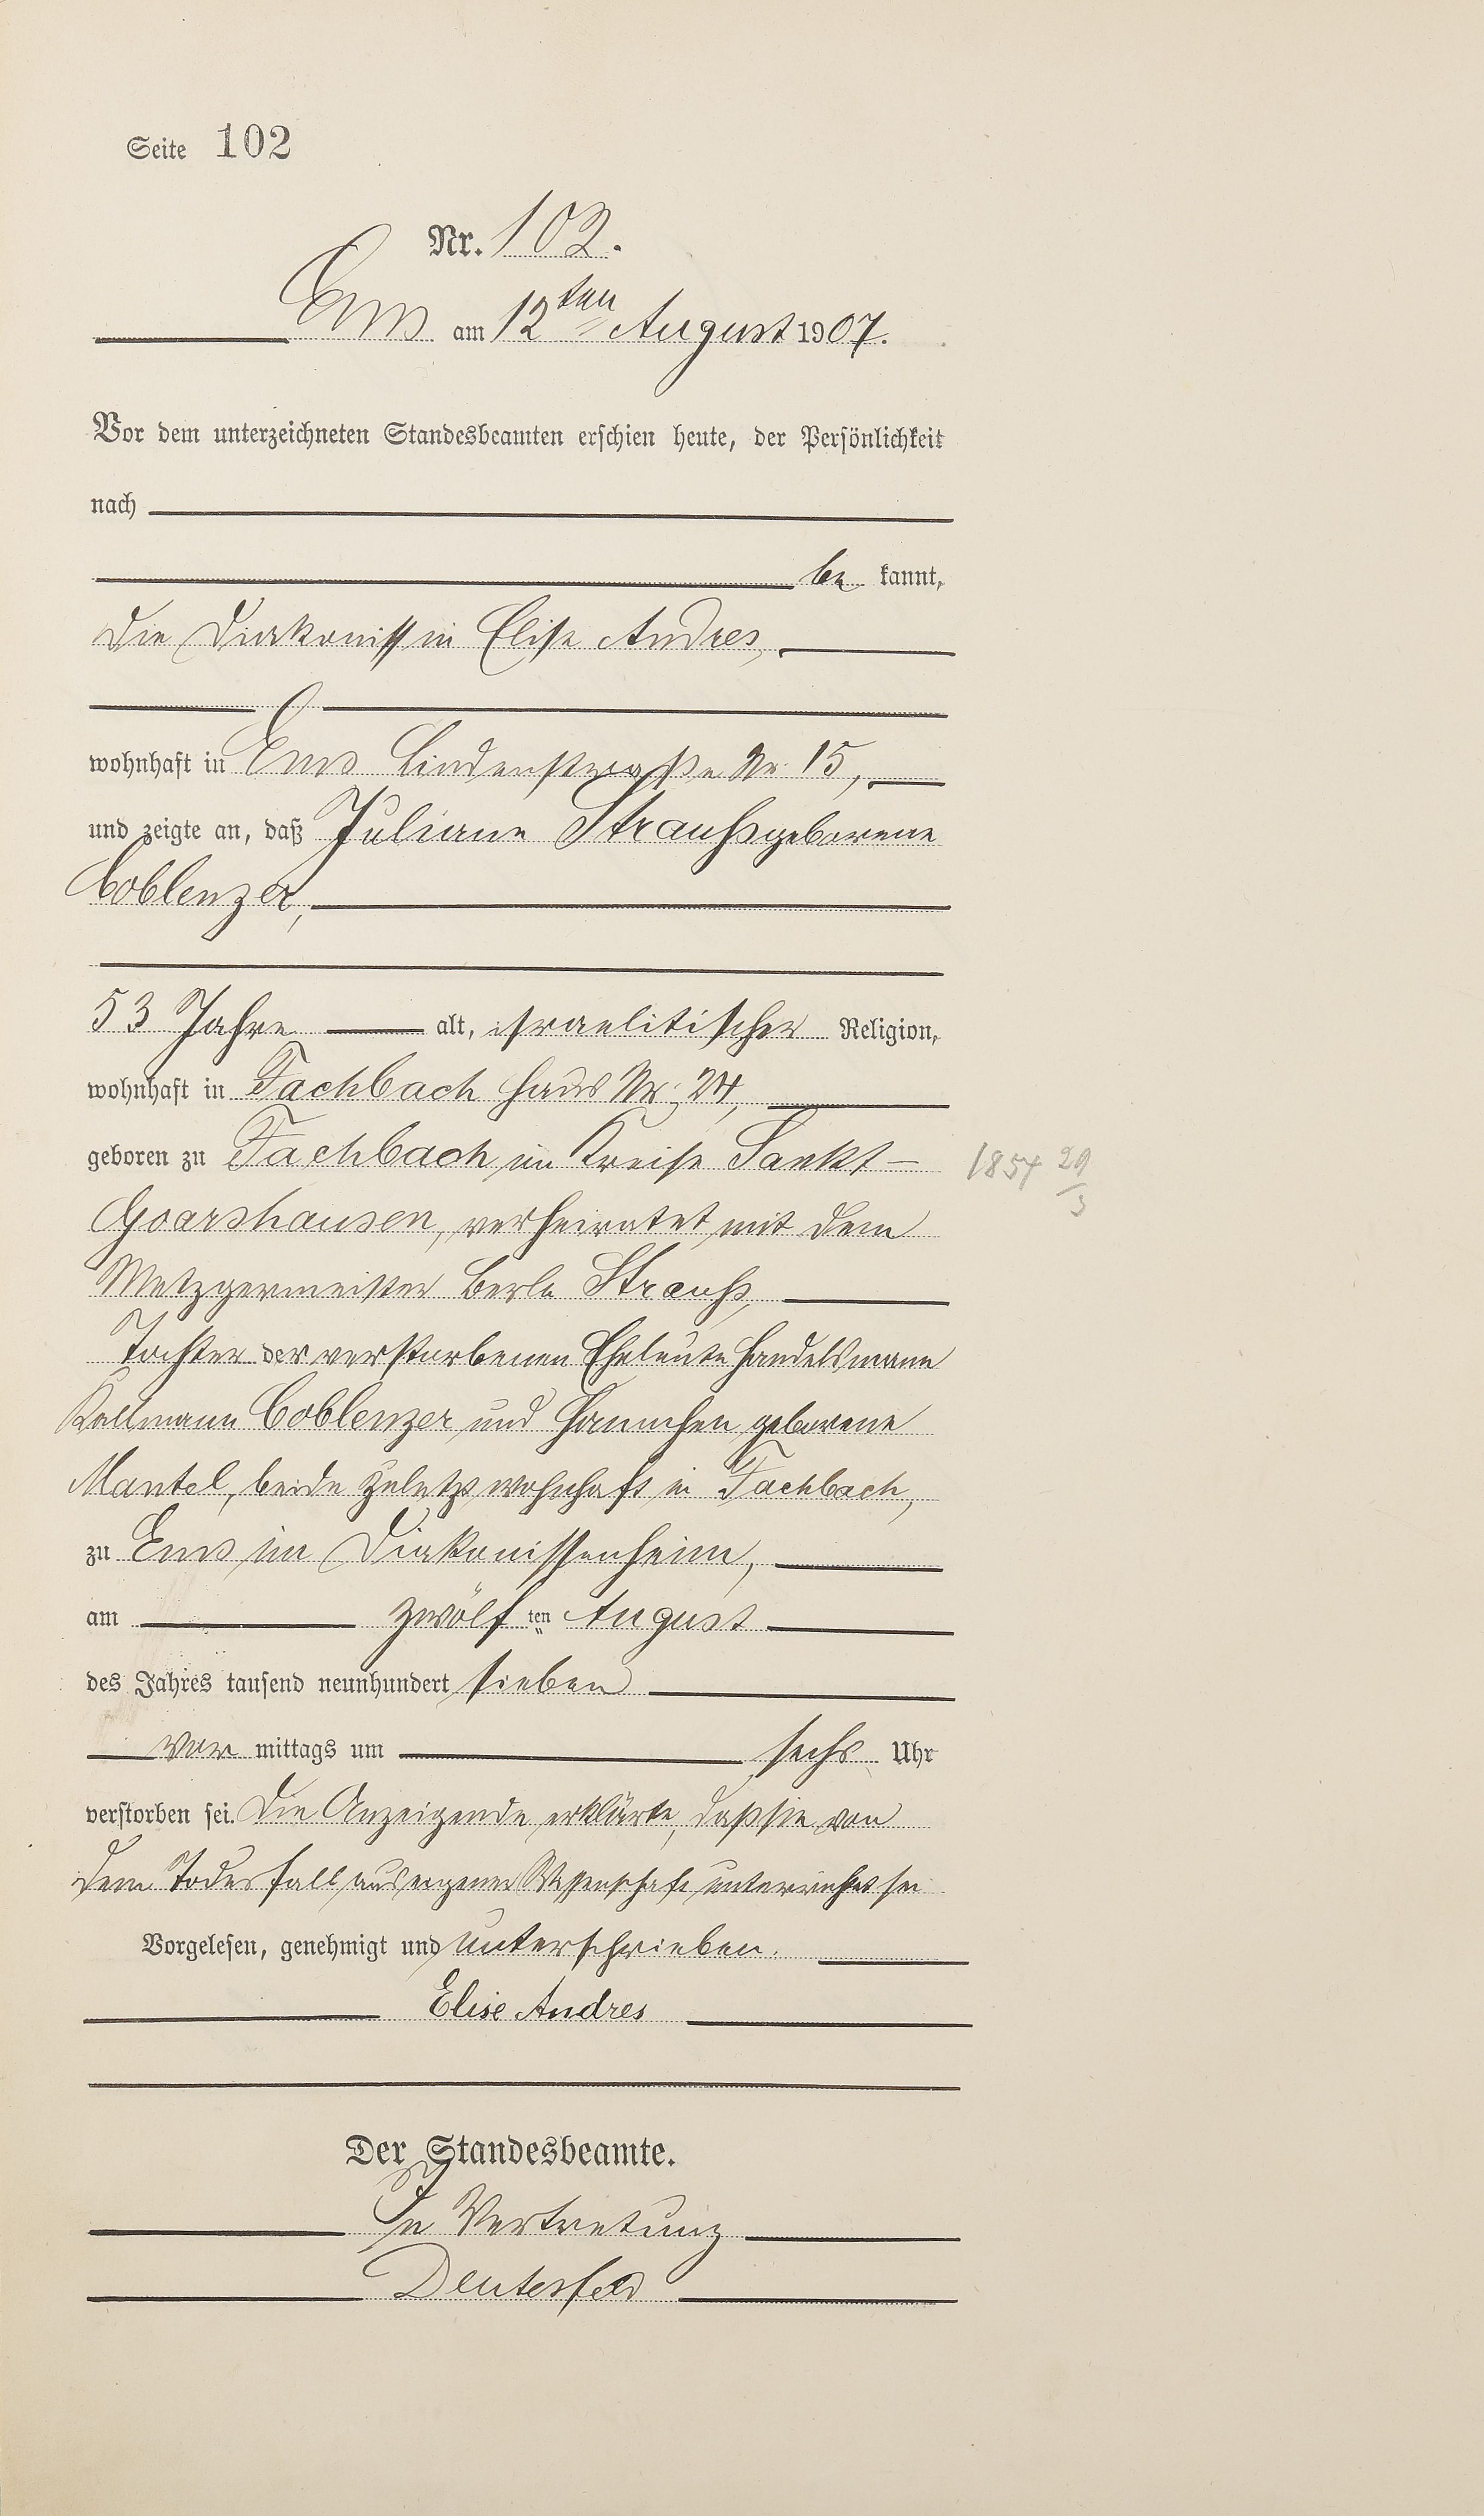 Seite 102
Nr. 102.
Ems am 12ten August 1907.
Vor dem unterzeichneten Standesbeamten erschien heute, der Persönlichkeit
nach
be kannt,
die Diakonissin Elise Andres,
wohnhaft in Ems Lindenstraße Nr. 15,
und zeigte an, daß Juliane Strauß geborene
Coblenzer,
53 Jahre alt, israelitischer Religion,
wohnhaft in Fachbach Haus Nr. 24,
geboren zu Fachbach im Kreise Sankt-
1854 29/3
Goarshausen, verheiratet mit dem
Metzgermeister Berle Strauß,
Tochter der verstorbenen Eheleute Handelsmann
Kallmann Coblenzer und Hannchen geborene
Mantel, beide zuletzt wohnhaft in Fachbach,
zu Ems im Diakonissenheim,
am zwölf ten August
des Jahres tausend neunhundert sieben
vor mittags um sechs Uhr
verstorben sei. Die Anzeigende erklärte, daß sie von
dem Todesfall aus eigener Wissenschaft unterrichtet sei
Vorgelesen, genehmigt und unterschrieben.
Elise Andres
Der Standesbeamte.
In Vertretung